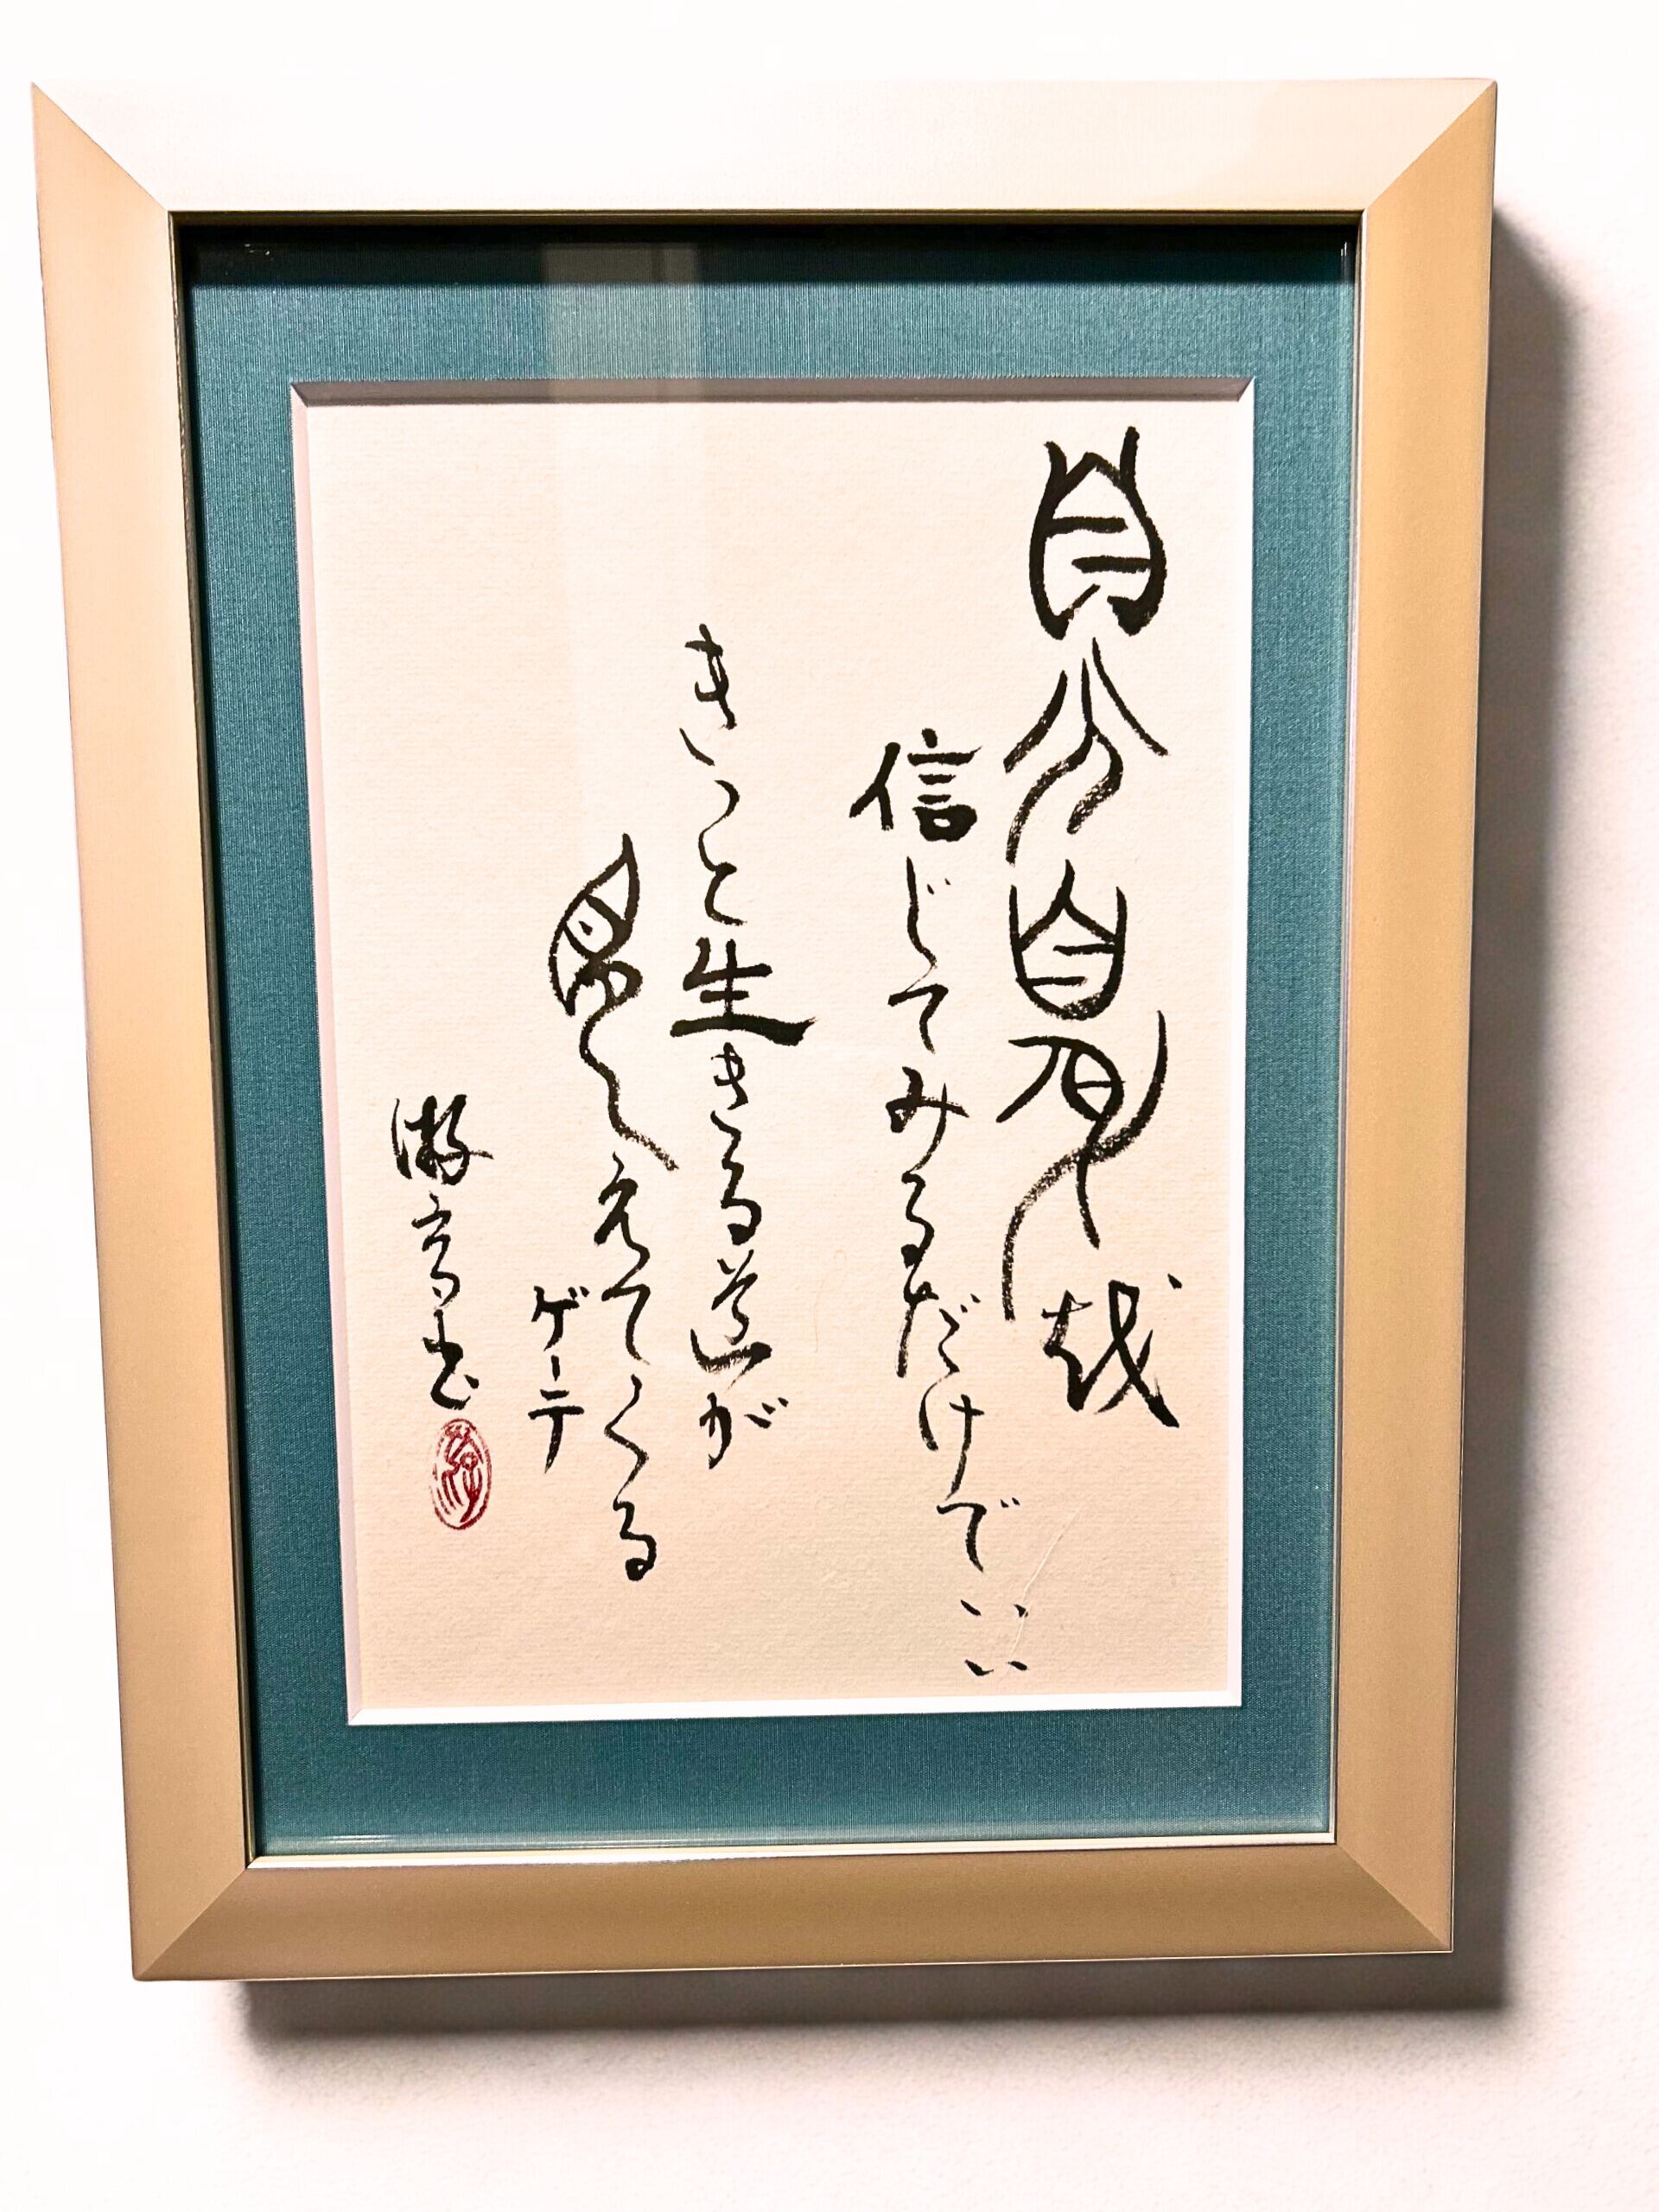 自分自身を
信じてみるだけでいい
きっと生きる道が
見えてくる
ゲーテ
游雲書